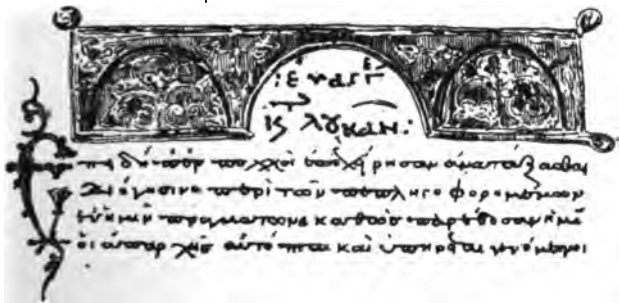 Εὐαγγε
κς λουκαν:
Ἐπειδήπερ πολλοὶ ἐπεχείρησαν ἀνατάξασθαι
διήγησιν περὶ τῶν πεπληροφορημένων
ἐν ἡμῖν πραγμάτων καθὼς παρέδοσαν ἡμῖ
οἱ ἀπαρχῆς αὐτόπται καὶ ὑπηρέται γενόμενοι